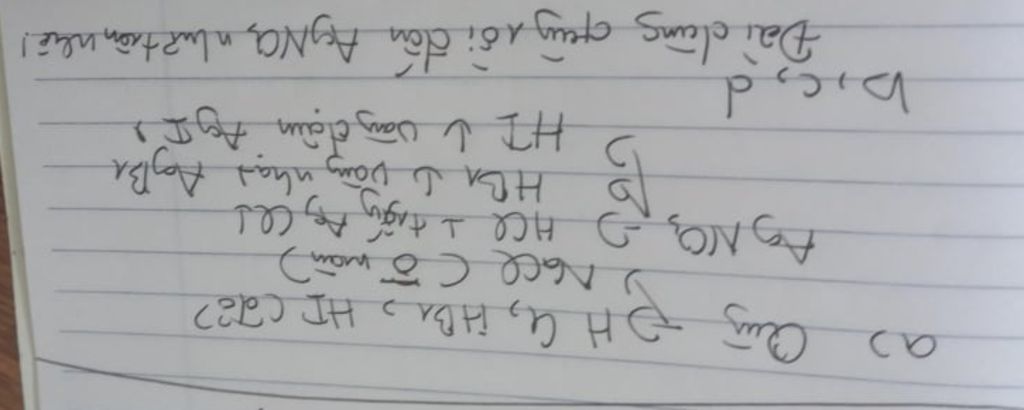 a) Quỳ → HCl, HBr, HI (đỏ)
→ NaCl (ō màu)
AgNO3 → HCl ↓ trắng AgCl↓
→ HBr ↓ vàng nhạt AgBr
→ HI ↓ vàng đậm AgI
b, c, d
Đều dùng quỳ rồi đến AgNO3 như trên nhé!